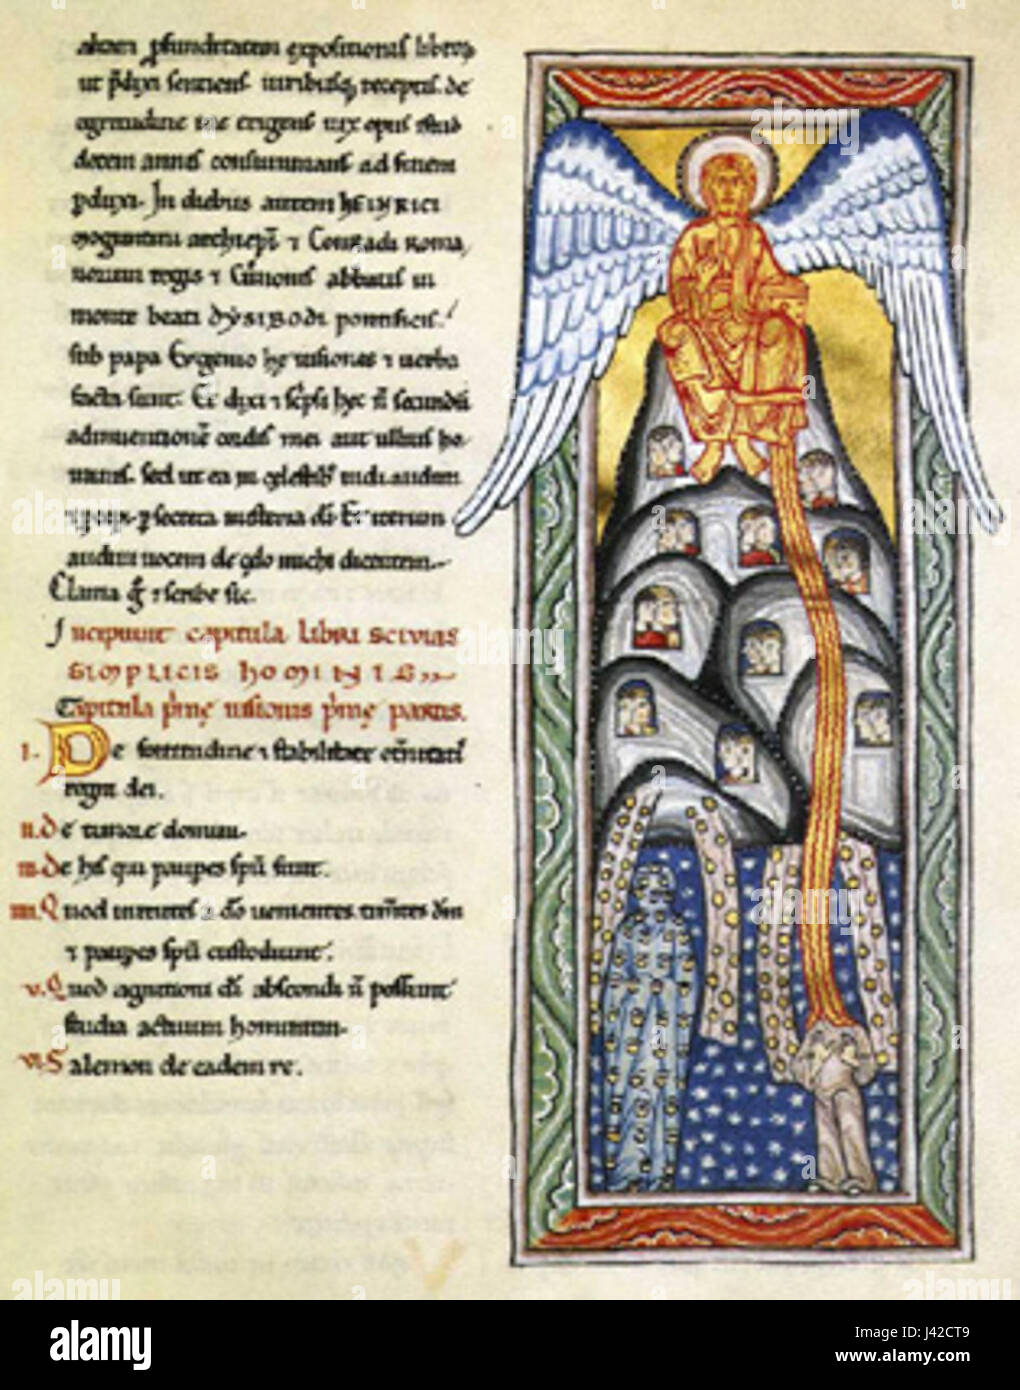 altam ꝓfunditatem expositionis libroꝝ
ut p̄dixi sentiens. uiribusq; receptis de
egritudine me erigens. uix opus istud
decem annis consummans ad finem
ꝑduxi. In diebus autem heinrici
moguntini archiep̄i ⁊ Conradi roma
norum regis ⁊ Cunonis abbatis in
monte beati dysibodi pontificis.
sub papa Eugenio hę uisiones ⁊ uerba
facta sunt. Et dixi ⁊ sc̄psi hęc n̄ secundū
adinuentionē cordis mei aut ullius ho
minis. sed ut ea in cęlestibꝰ uidi. audiui
⁊ ꝑcepi ꝑ secreta misteria di. Et iterum
audiui uocem de cęlo michi dicentem.
Clama g̊ ⁊ scribe sic.
Incipiunt capitula libri scivias
simplicis hominis
Capitula p̄mę uisionis p̄mę partis.
i. De fortitudine ⁊ stabilitate ęt̄nitatis
regni dei.
ii. De timore domini.
iii. De his qui paupes sp̄u sunt.
iiii. Quod uirtutes a dō uenientes tim̄tes dm̄
⁊ paupes sp̄u custodiunt.
v. Quod agnitioni di abscondi n̄ possunt
studia actuum hominum.
vi. Salemon de eadem re.
alamy
alamy
Image ID: J42CT9
www.alamy.com